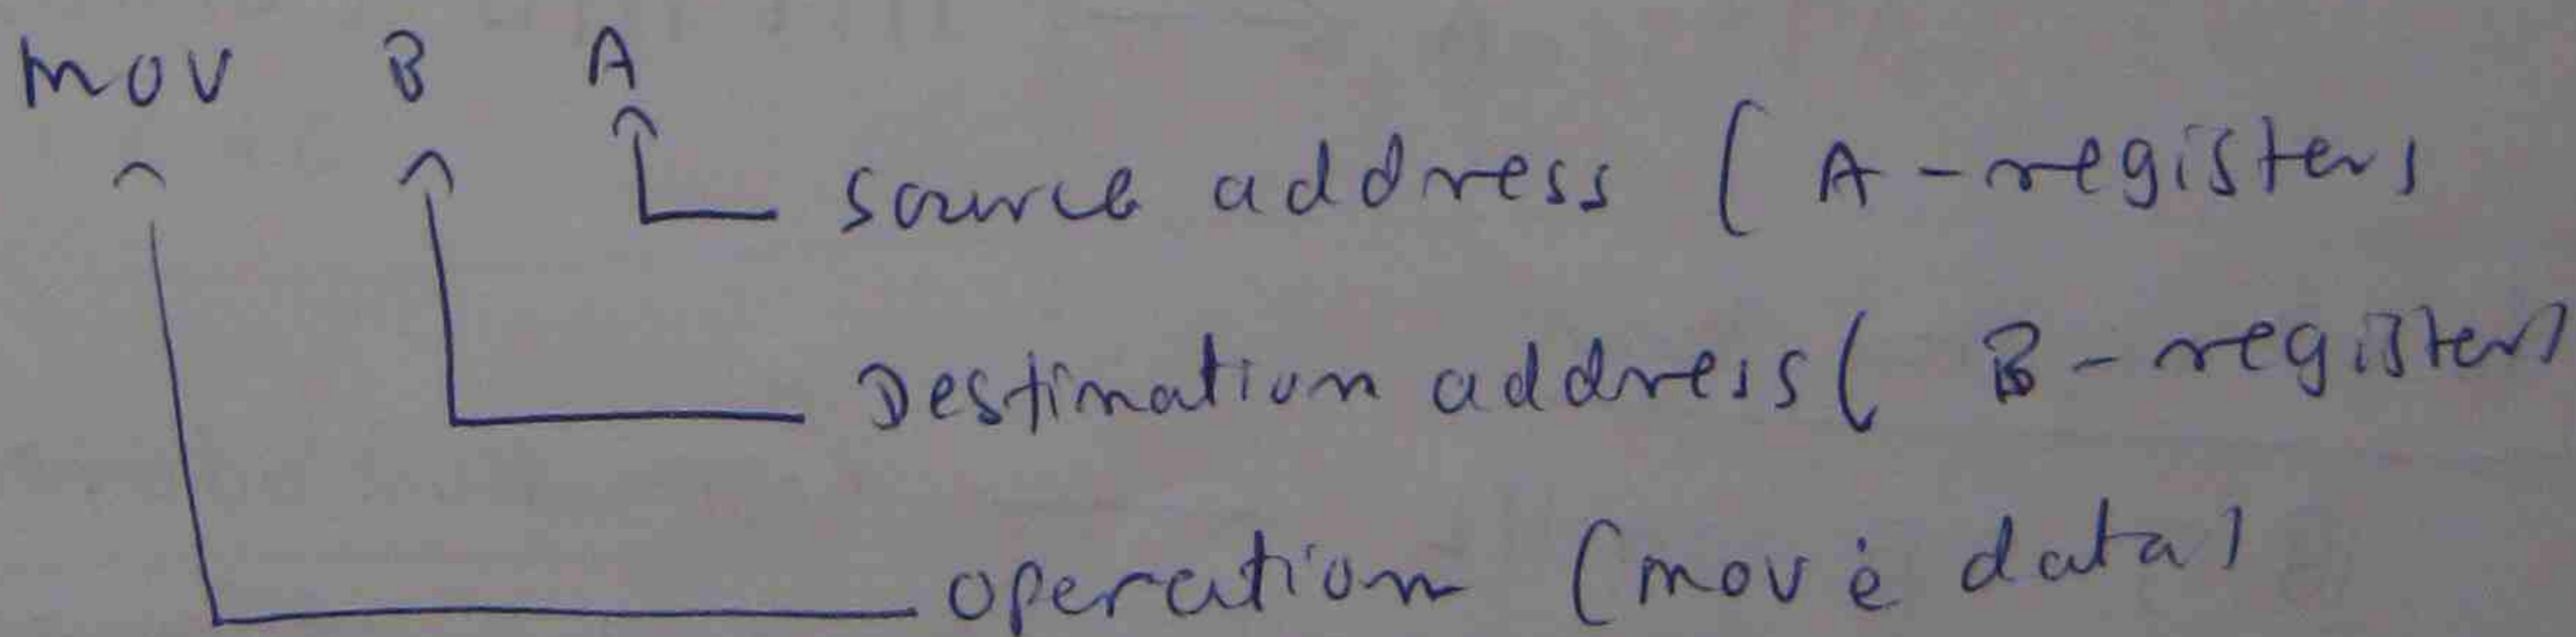 mov B A
source address (A-register)
Destination address (B-register)
operation (move data)